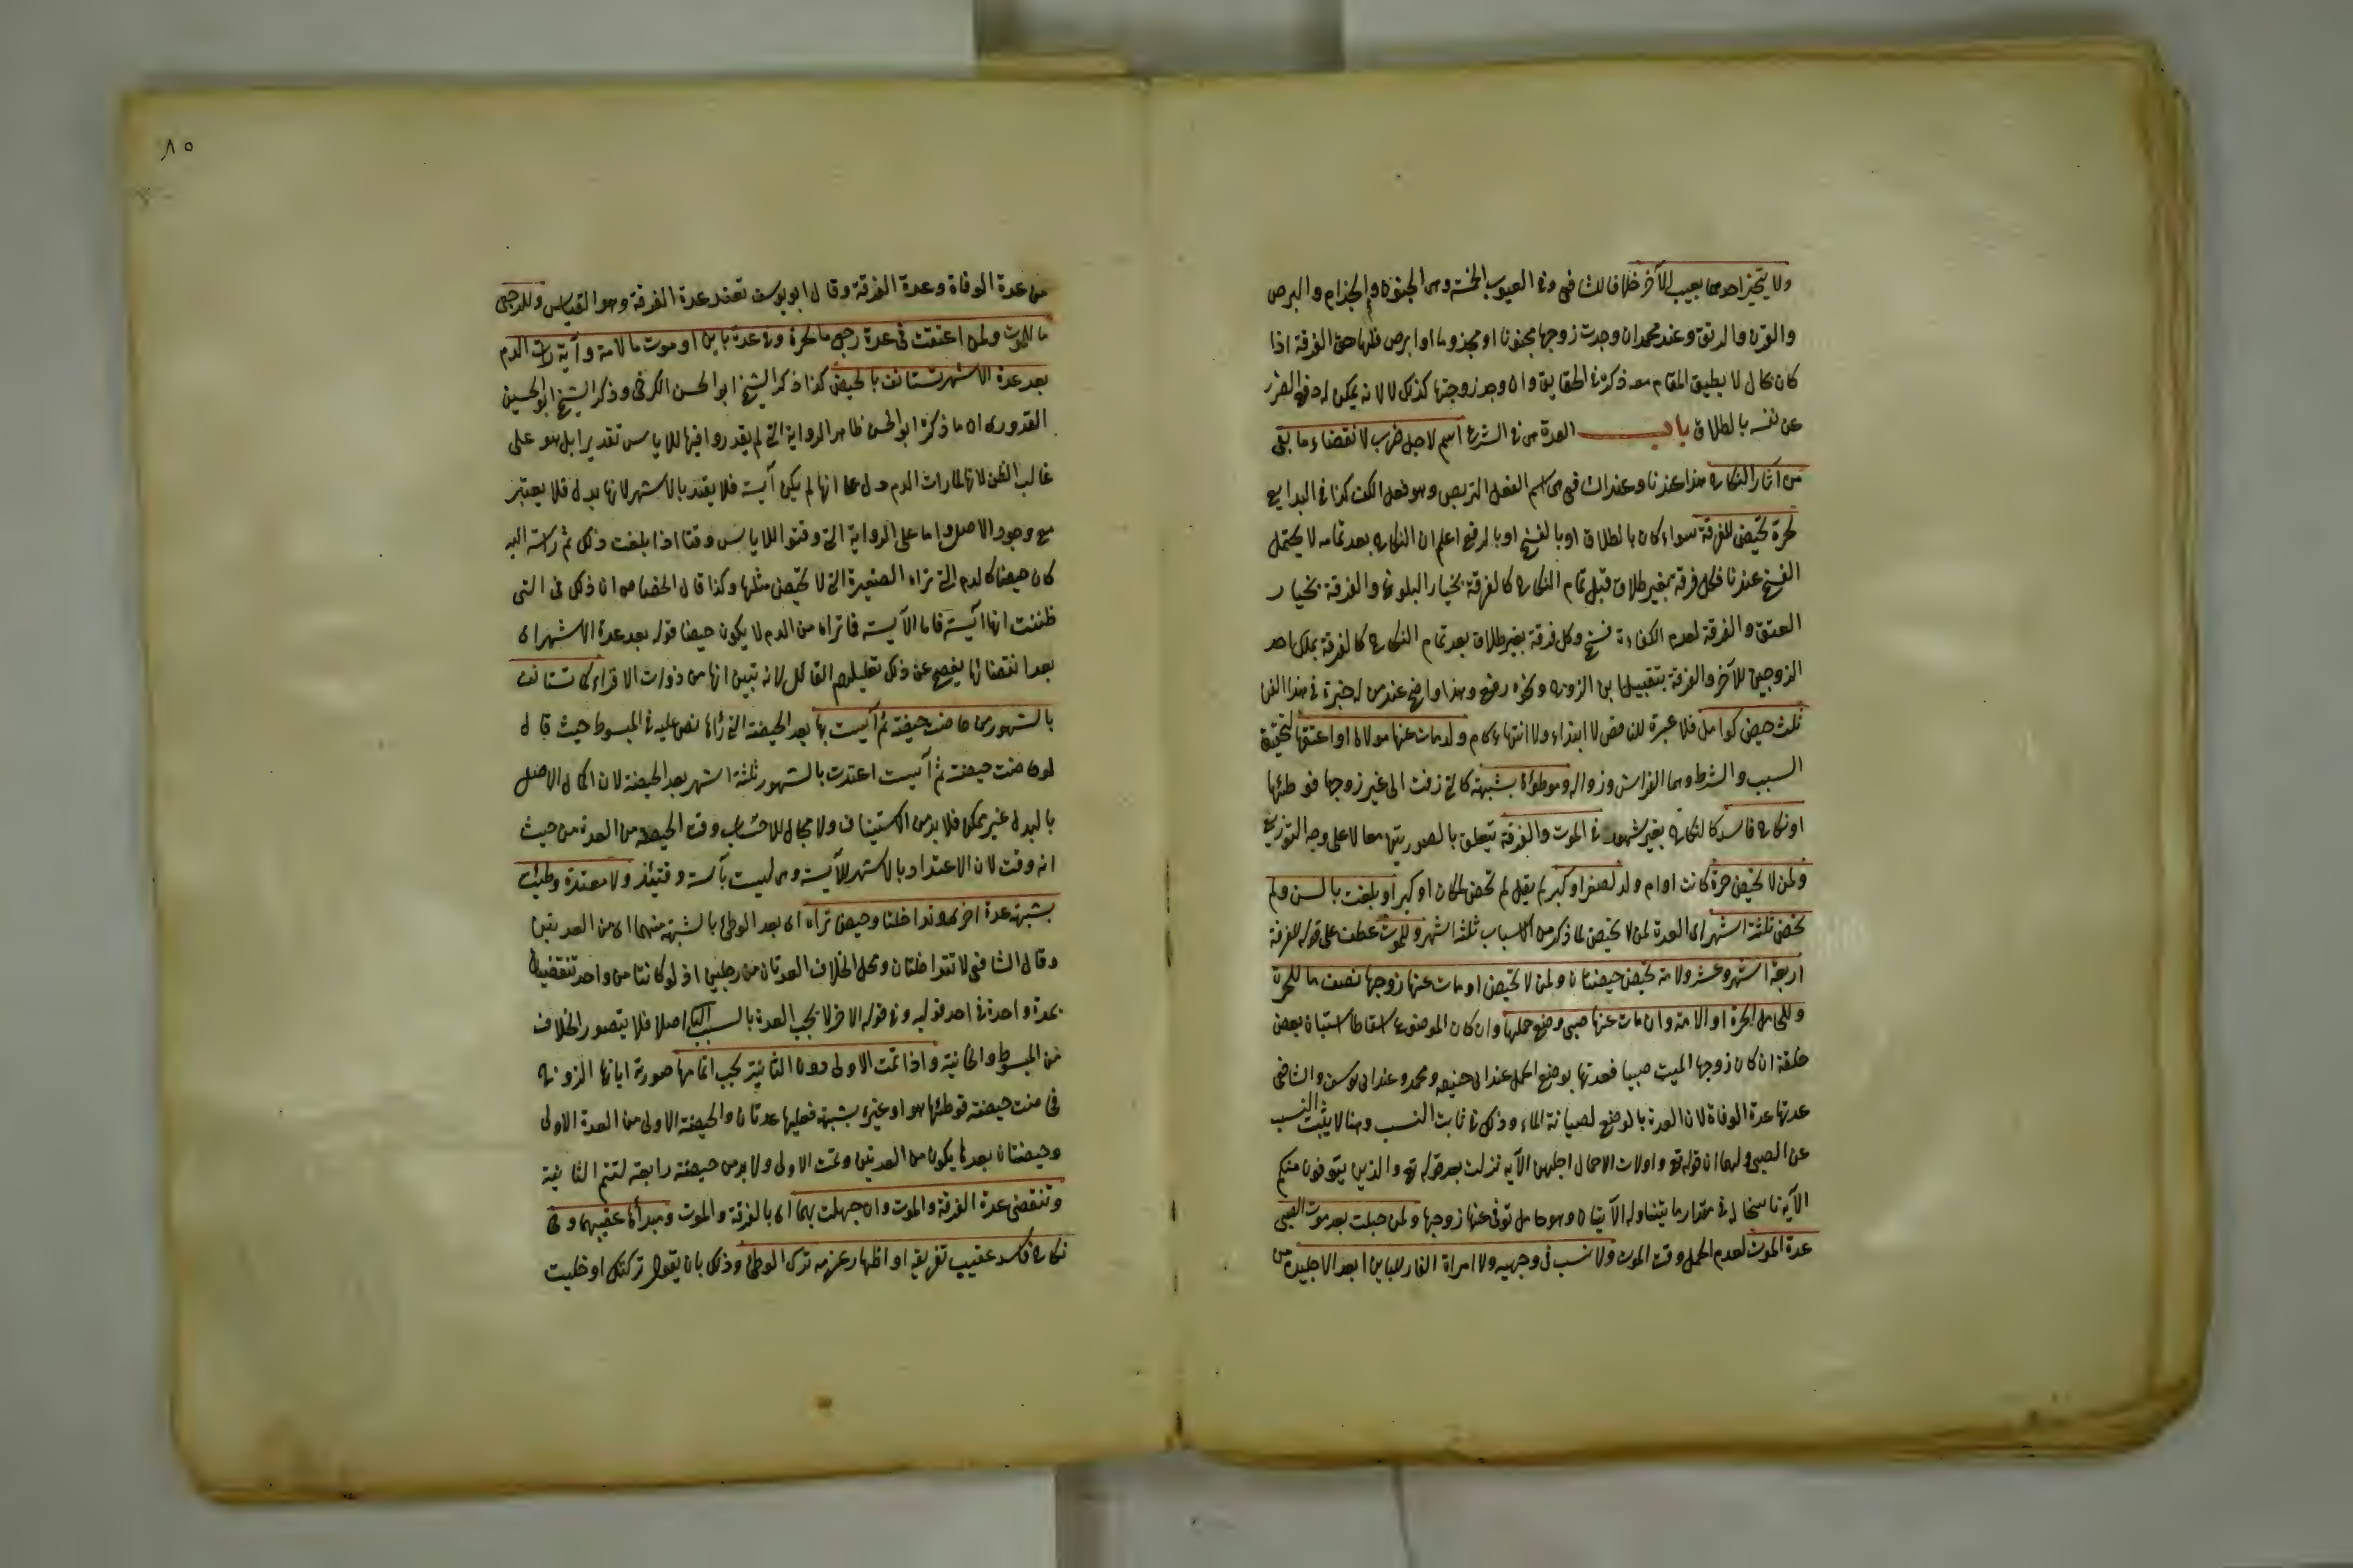 ولا يتخير احدهما بعيب الآخر خلافا للشافعي في العيوب الخمسة وهي الجنون والجذام والبرص
والقرن والرتق وعند محمد ان وجدت زوجها مجنونا او مجذوما او ابرص فلها حق الفرقة اذا
كان بحال لا يطيق المقام معه ذكره في الحقايق وان وجد زوجته كذلك لا لانه يمكن له دفع الضرر
عن نفسه بالطلاق باب العدة هي في الشرع اسم لاجل ضرب لانقضاء ما بقي
من آثار النكاح هذا عندنا وعند الشافعي هي اسم لفعل التربص وهو فعل الكف كذا في البدايع
لحرة تحيض للفرقة سواء كان بالطلاق او بالفسخ او بالرفع اعلم ان النكاح بعد تمامه لا يحتمل
الفسخ عندنا فكل فرقة بغير طلاق قبل تمام النكاح كالفرقة بخيار البلوغ والفرقة بخيار
العتق والفرقة لعدم الكفاءة فسخ وكل فرقة بغير طلاق بعد تمام النكاح كالفرقة بملك احد
الزوجين للآخر والفرقة بتقبيل ابن الزوج ونحوه رفع وهذا واضح عند من له خبرة في هذا الفن
ثلث حيض كوامل فلا عبرة للناقص لا ابتداء ولا انتهاء كام ولد مات عنها مولاها او اعتقها لتحقق
السبب والشرط وهما الفراش وزواله وموطؤة بشبهة كالتي زفت الى غير زوجها فوطئها
او نكاح فاسد كالنكاح بغير شهود في الموت والفرقة يتعلق بالصورتين معا لا على وجه التوزيع
ولمن لا تحيض حرة كانت او ام ولد لصغر او كبر لم يقل لم تحض لمكان او كبر او بلغت بالسن ولم
تحض ثلثة اشهر اي العدة لمن لا تحيض لما ذكر من الاسباب ثلثة اشهر وللموت عطف على قوله للفرقة
اربعة اشهر وعشر ولامة تحيض حيضتان ولمن لا تحيض او مات عنها زوجها نصف ما للحرة
وللحامل الحرة او الامة وان مات عنها صبي وضع حملها وان كان الموضوع سقطا استبان بعض
خلقه ان كان زوجها الميت صبيا فعدتها بوضع الحمل عند ابي حنيفه ومحمد وعند ابي يوسف والشافعي
عدتها عدة الوفاة لان العدة بالوضع لصيانة الماء وذلك في ثابت النسب وهنا لا يثبت النسب
عن الصبي ولهما ان قوله تع واولات الاحمال اجلهن الآيه نزلت بعد قوله تع والذين يتوفون منكم
الآية ناسخا له في مقدار ما يتناوله الآيتان وهو حامل توفي عنها زوجها ولمن حبلت بعد موت الصبي
عدة الموت لعدم الحمل وقت الموت ولا نسب في وجهيه ولامراة الفار للباين ابعد الاجلين من
من عدة الوفاة وعدة الفرقة وقال ابو يوسف تعتد عدة الفرقة وهو القياس وللرجعي
ما للموت ولمن اعتقت في عدة رجعي ما لحرة وفي عدة باين او موت ما لامة وآيسة رات الدم
بعد عدة الاشهر تستانف بالحيض كذا ذكر الشيخ ابو الحسن الكرخي وذكر الشيخ ابو الحسين
القدوري ان ما ذكره ابو الحسن ظاهر الرواية التي لم يقدروا فيها للاياس تقديرا بل هو على
غالب الظن لانها لما رات الدم دل على انها لم يكن آيسة فلا يعتد بالاشهر لانها بدل فلا يعتبر
مع وجود الاصل واما على الرواية التي وقتوا للاياس وقتا اذا بلغت ذلك ثم رات
كان حيضا كالدم التي تراه الصغيرة التي لا تحيض مثلها وكذا قال الخصاف ان ذلك في التي
ظننت انها آيسة فاما الآيسة فما تراه من الدم لا يكون حيضا قوله بعد عدة الاشهر اي
بعد انقضائها يفصح عن ذلك تعليلهم القائل لانه تبين انها من ذوات الاقراء كما تستانف
بالشهور من حاضت حيضة ثم آيست بها بعد الحيضة التي رأتها نص عليه في المبسوط حيث قال
لو حاضت حيضة ثم آيست اعتدت بالشهور ثلثة اشهر بعد الحيضة لان اكمال الاصل
بالبدل غير ممكن فلا بد من الاستيناف ولا مجال للاحتساب وقت الحيضة من العدة من حيث
انه وقت لان الاعتداد بالاشهر للآيسة وهي ليست بآيسة وقتيئذ ولا معتدة وطئت
بشبهة عدة اخرى وتداخلتا وحيض تراه اي بعد الوطئ بالشبهة منهما اي من العدتين
وقال الشافعي لا تتداخلان ومحل الخلاف العدتان من رجلين اذ لو كانتا من واحد تنقضيان
بعدة واحدة في احد قوليه وفي قوله الآخر لا يجب العدة بالسبب اصلا فلا يتصور الخلاف
من المبسوط والخانية واذا تمت الاولى دون الثانية يجب اتمامها صورته ابانها الزوج
فحاضت حيضة فوطئها هو او غيره بشبهة فعليها عدتان والحيضة الاولى من العدة الاولى
وحيضتان بعدها يكون من العدتين وتمت الاولى ولا بد من حيضة رابعة لتتم الثانية
وتنقضي عدة الفرقة والموت وان جهلت بهما اي بالفرقة والموت ومبدأها عقيبهما وفي
نكاح فاسد عقيب تفريقه او اظهار عزمه ترك الوطئ وذلك بان يقول تركتك او خليت
٨٥